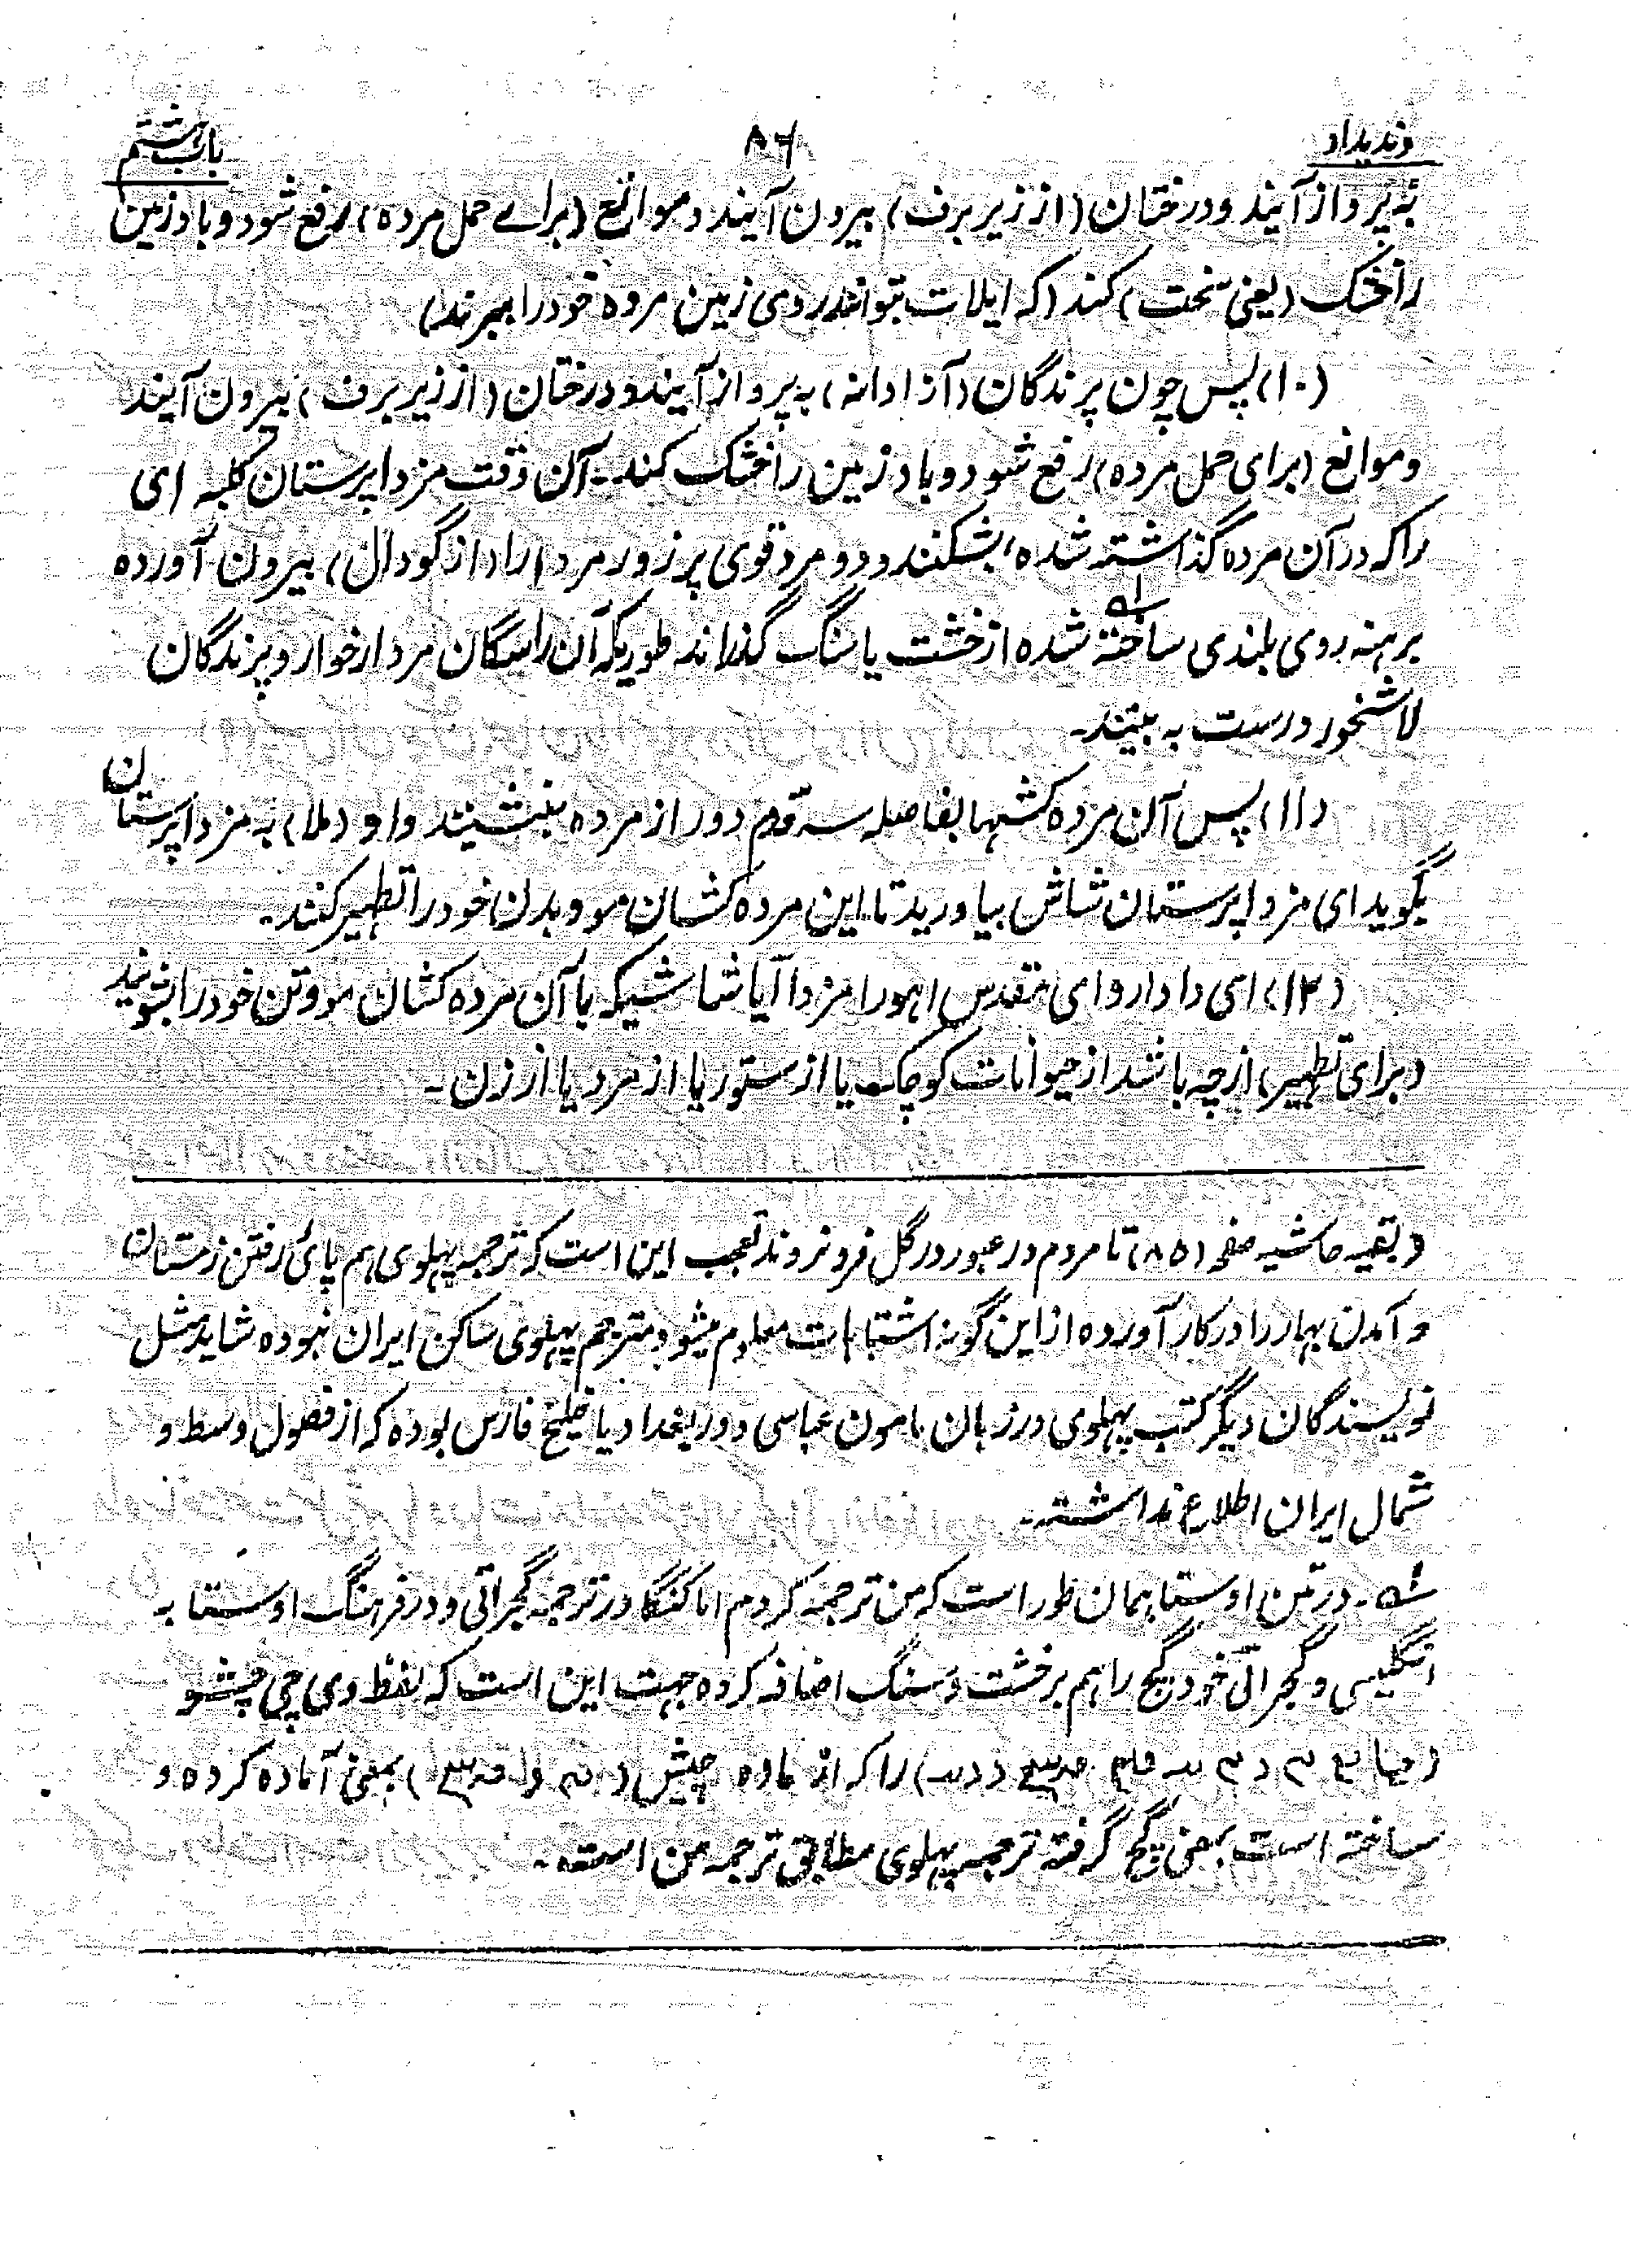 وندیداد
۸۶
باب هشتم
به پرواز آیند و درختان (از زیر برف) بیرون آیند و موانع (برای حمل مرده) رفع شود و باد زمین
را خشک (یعنی سخت) کند (که ایلات بتوانند روی زمین مرده خود را ببرند)
(۱۰) پس چون پرندگان (آزادانه) به پرواز آیند و درختان (از زیر برف) بیرون آیند
و موانع (برای حمل مرده) رفع شود و باد زمین را خشک کند۔ آن وقت مزداپرستان کلبه ای
را که در آن مرده گذاشته شده، بشکنند و دو مرد قوی پر زور مرده را (از گودال) بیرون آورده
برهنه روی بلندی ساخته شده از خشت یا سنگ گذراند طوریکه آن را سگان مردار خوار و پرندگان
لاشخور درست به بینند۔
(۱۱) پس آن مرده کشها بفاصله سه قدم دور از مرده بنشینند و او (ملا) به مزداپرستان
بگوید ای مزداپرستان شاش بیاورید تا این مرده کشان مو و بدن خود را تطهیر کنند۔
(۱۲) ای دادار و ای مقدس اهورا مزدا آیا شاشیکه با آن مرده کشان مو و تن خود را بشویند
(برای تطهیر) از چه باشد از حیوانات کوچک یا از ستور یا از مرد یا از زن۔
(بقیه حاشیه صفحه (۸۵) تا مردم در عبور در گل فرو نروند تعجب این است که ترجمه پهلوی هم پائ رفتن زمستان
و آمدن بهار را در کار آورده از این گونه اشتباهات معلوم میشود مترجم پهلوی ساکن ایران نبوده شاید مثل
نویسندگان دیگر کتب پهلوی در زمان مامون عباسی و در بغداد یا خلیج فارس بوده که از فصول وسط و
شمال ایران اطلاع نداشته۔
۱ه۔ در متن اوستا همان طور است که من ترجمه کردم اما کنگا در ترجمه گجراتی و در فرهنگ اوستا به
انگلیسی و گجراتی خود گچ را هم بر خشت و سنگ اضافه کرده جهت این است که لفظ وی چی چشو
را که از ماده چیش بمعنی آماده کرده و
ساخته است بمعنی گچ گرفته ترجمه پهلوی مطابق ترجمه من است۔